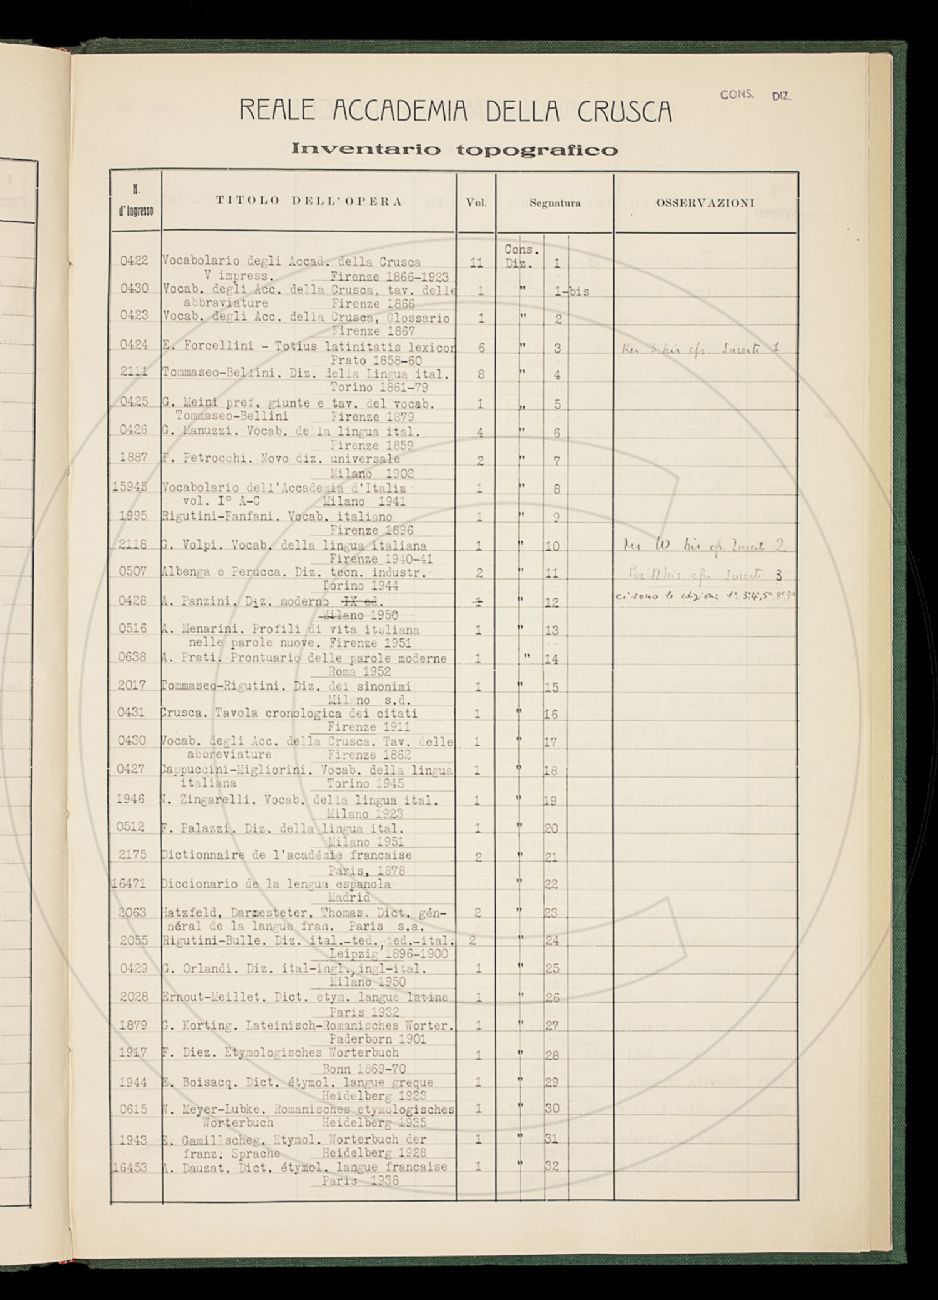 CONS. DIZ.
REALE ACCADEMIA DELLA CRUSCA
Inventario topografico
N. d'Ingresso TITOLO DELL'OPERA Vol. Segnatura OSSERVAZIONI
Cons.
0422 Vocabolario degli Accad. della Crusca 11 Diz. 1
V impress. Firenze 1866-1923
0430 Vocab. degli Acc. della Crusca. tav. delle 1 " 1-bis
abbraviature Firenze 1866
0423 Vocab. degli Acc. della Crusca, Glossario 1 " 2
Firenze 1867
0424 E. Forcellini - Totius latinitatis lexicon 6 " 3 Per 3 bis cfr. Inserti 1
Prato 1858-60
2111 Tommaseo-Bellini. Diz. della Lingua ital. 8 " 4
Torino 1861-79
0425 G. Meini pref. giunte e tav. del vocab. 1 " 5
Tommaseo-Bellini Firenze 1879
0426 G. Manuzzi. Vocab. de la lingua ital. 4 " 6
Firenze 1859
1887 P. Petrocchi. Novo diz. universale 2 " 7
Milano 1902
15945 Vocabolario dell'Accademia d'Italia 1 " 8
vol. I° A-C Milano 1941
1995 Rigutini-Fanfani. Vocab. italiano 1 " 9
Firenze 1896
2118 G. Volpi. Vocab. della lingua italiana 1 " 10 Per 10 bis cfr. Inserti 2
Firenze 1940-41
0507 Albenga e Perucca. Diz. tecn. industr. 2 " 11 Per 11 bis cfr. Inserti 3
Torino 1944
0428 A. Panzini. Diz. moderno IX ed. 1 " 12 ci sono le edizioni
Milano 1950
0516 A. Menarini. Profili di vita italiana 1 " 13
nelle parole nuove. Firenze 1951
0638 A. Prati. Prontuario delle parole moderne 1 " 14
Roma 1952
2017 Tommaseo-Rigutini. Diz. dei sinonimi 1 " 15
Milano s.d.
0431 Crusca. Tavola cronologica dei citati 1 " 16
Firenze 1911
0430 Vocab. degli Acc. della Crusca. Tav. delle 1 " 17
abbreviature Firenze 1862
0427 Cappuccini-Migliorini. Vocab. della lingua 1 " 18
italiana Torino 1945
1946 N. Zingarelli. Vocab. della lingua ital. 1 " 19
Milano 1923
0512 F. Palazzi. Diz. della lingua ital. 1 " 20
Milano 1951
2175 Dictionnaire de l'académie francaise 2 " 21
Paris, 1878
16471 Diccionario de la lengua espanola " 22
Madrid
3063 Hatzfeld, Darmesteter, Thomas. Dict. gén- 2 " 23
néral de la langue fran. Paris s.a.
2055 Rigutini-Bulle. Diz. ital.-ted., ted.-ital. 2 " 24
Leipzig 1896-1900
0429 G. Orlandi. Diz. ital-ingl., ingl-ital. 1 " 25
Milano 1950
2028 Ernout-Meillet. Dict. etym. langue latine 1 " 26
Paris 1932
1879 G. Korting. Lateinisch-Romanisches Worter. 1 " 27
Paderborn 1901
1917 F. Diez. Etymologisches Worterbuch 1 " 28
Bonn 1869-70
1944 E. Boisacq. Dict. étymol. langue greque 1 " 29
Heidelberg 1923
0615 W. Meyer-Lubke. Romanisches etymologisches 1 " 30
Worterbuch Heidelberg 1935
1943 E. Gamillscheg. Etymol. Worterbuch der 1 " 31
franz. Sprache Heidelberg 1928
16453 A. Dauzat. Dict. étymol. langue francaise 1 " 32
Paris 1938